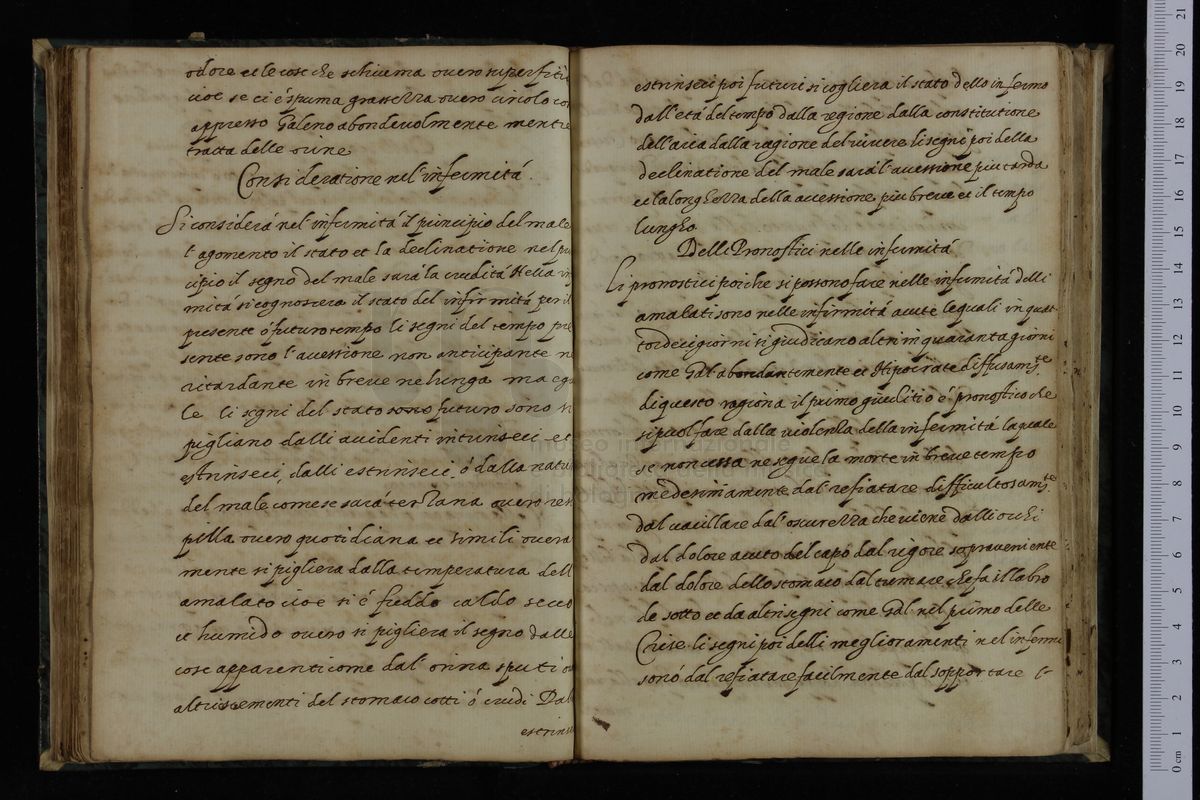 odore et le cose che schiuma overo superfitie
cioe se ci é spuma grassezza overo circolo co
appresso Galeno abondevolmente mentre
tratta delle orine
Consideratione nel infermitá.
Si considerá nel infermitá il principio del male
l'agomento il stato et la declinatione nel prin
cipio il segno del male sará la crudità Nella in
mitá si cognoscera il stato del infirmitá per il
presente ó futuro tempo li segni del tempo pre
sente sono l'acessione non anticipante ne
ritardante in breve ne lunga ma egu
le li segni del stato sono futuro sono si
pigliano dalli accidenti intrinseci et
estrinseci, dalli estrinseci, ó dalla natu
del male come se sará terzana overo res
pilla overo quotidiana et simili overa
mente si pigliera dalla temperatura dell
amalato cioe si é freddo caldo secco
et humido overo si pigliera il segno dalle
cose apparenti come dal orina sputi o
altri escrementi del stomaco cotti ó crudi Dal
estrins
estrinseci poi futuri si cogliera il stato dello infermo
dall'etá del tempo dalla regione dalla constitutione
dell'aria dalla ragione del vivere li segni poi della
declinatione del male sará l'accessione piu tarda
et la longhezza della accessione piu breve et il tempo
lungho
Delli Pronostici nelle infirmitá
Li pronostici poi che si possono fare nelle infirmitá delli
amalati sono nelle infirmitá acute le quali in quat
tordeci giorni si giudicano altri in quaranta giorni
come Gal abondantemente et Hipocrate diffusam.te
di questo ragiona il primo giuditio é pronostico che
si puol fare dalla violenza della infermitá la quale
se non cessa ne segue la morte in breve tempo
medesimamente dal refiatare difficultosam.te
dal vacillare dal' oscurezza che viene dalli occhi
dal dolore acuto del capo dal rigore sopraveniente
dal dolore dello stomaco dal tumare che fa il labro
de sotto et da altri segni come Gal. nel primo delle
Crise li segni poi delli meglioramenti nel infermi
sonó dal refiatare facilmente dal sopportare l-
museo internazionale